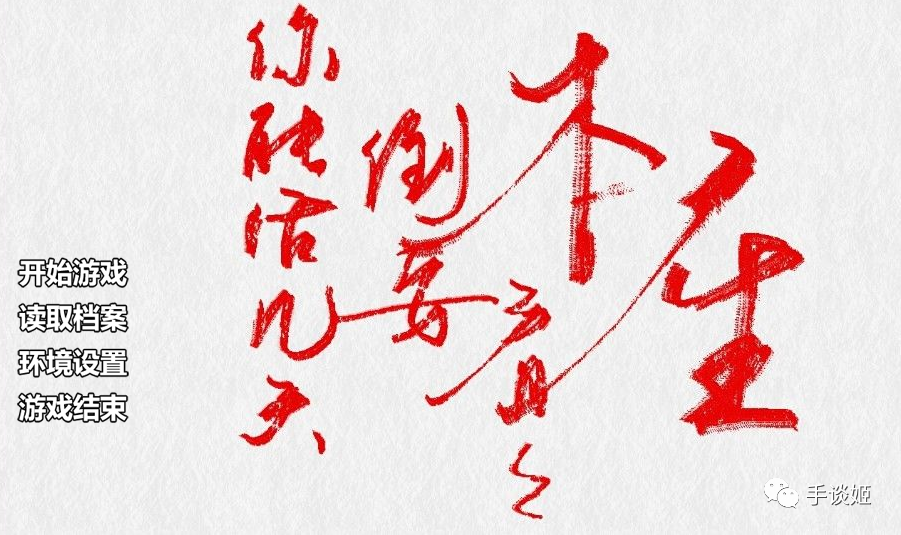 本座
倒要看看
你能活几天
开始游戏
读取档案
环境设置
游戏结束
手谈姬